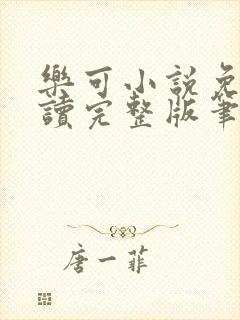 樂可小說免
讀完整版筆
唐一菲